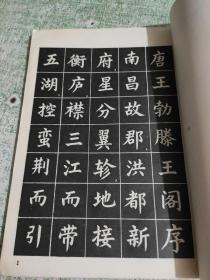 唐王勃滕王阁序
南昌故郡洪都新
府星分翼轸地接
衡庐襟三江而带
五湖控蛮荆而引
2